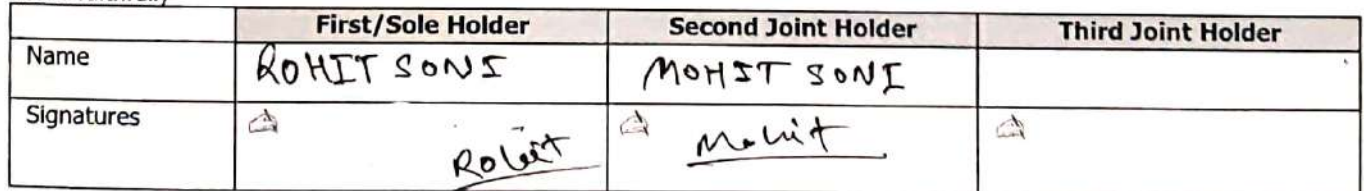 First/Sole Holder Second Joint Holder Third Joint Holder
Name ROHIT SONI MOHIT SONI
Signatures Rohit Mohit